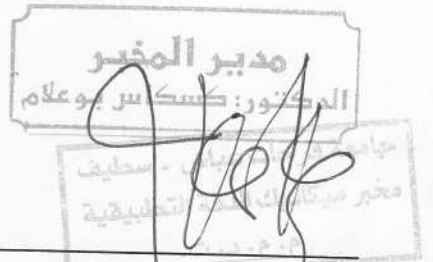 مدير المخبر
الدكتور: كسكاس بوعلام
جامعة فرحات عباس - سطيف
مخبر ميكانيك الدقة التطبيقية